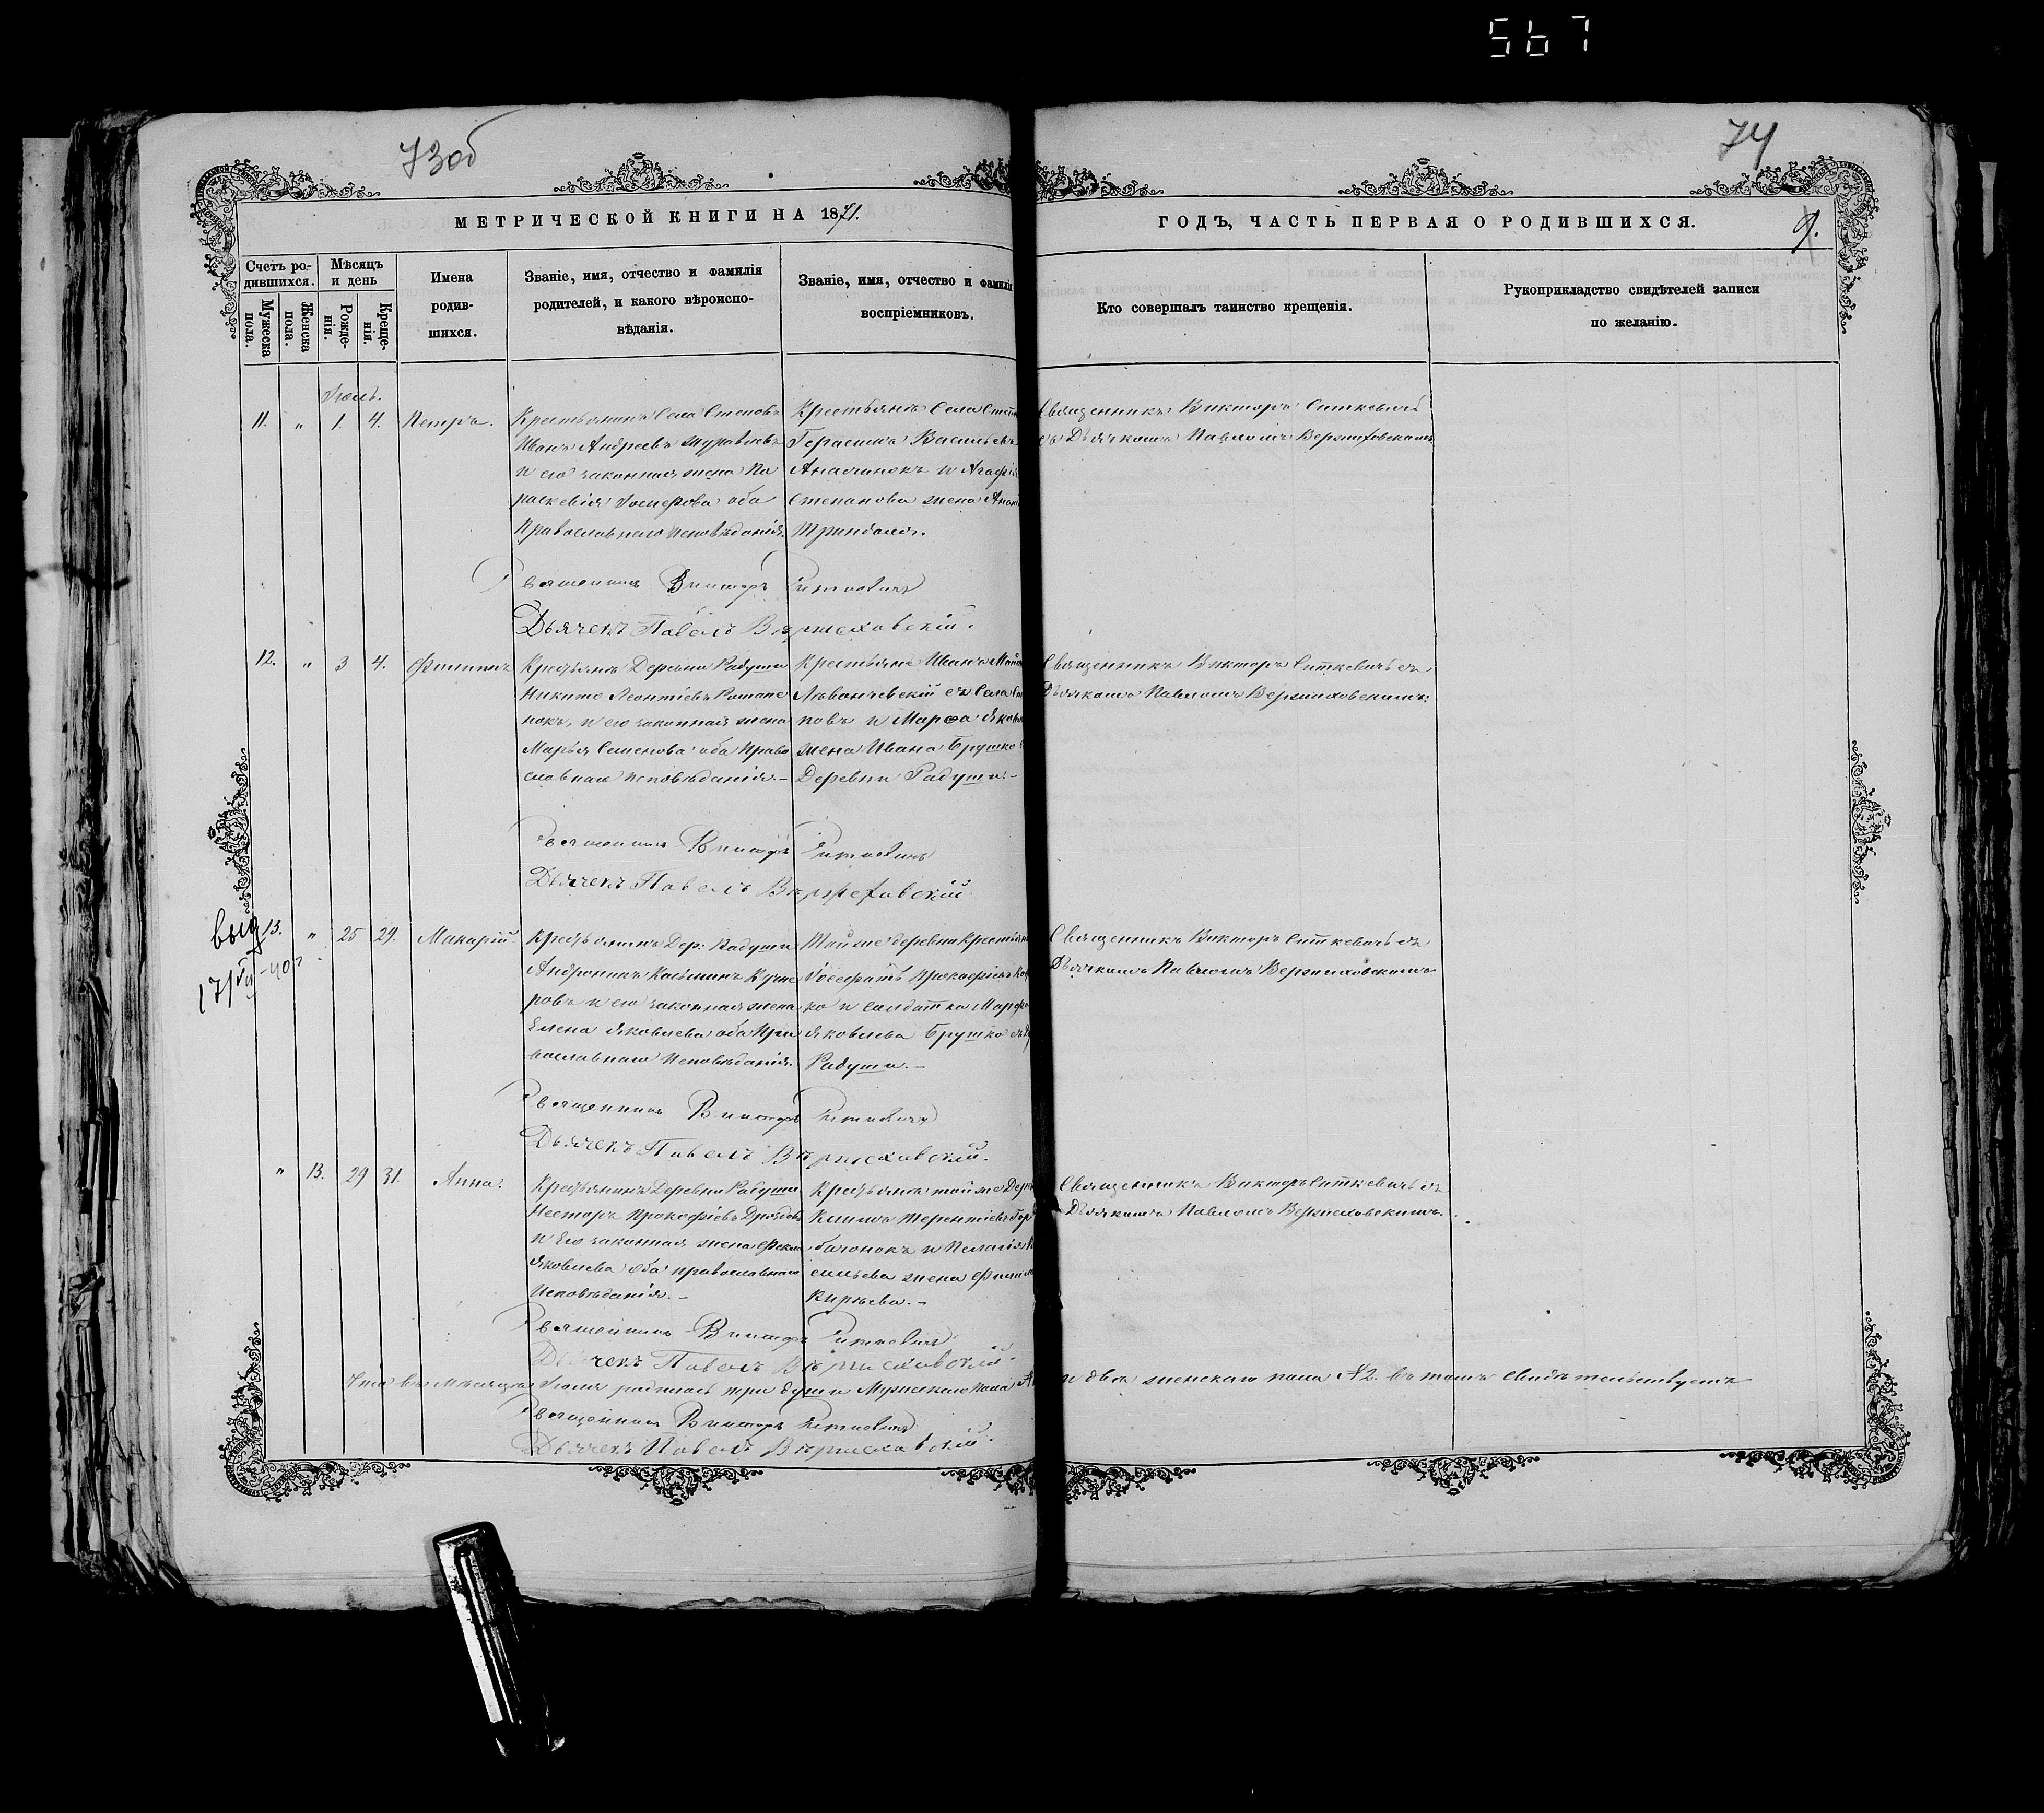 567
73об
74
МЕТРИЧЕСКОЙ КНИГИ НА 1871.
ГОДЪ, ЧАСТЬ ПЕРВАЯ О РОДИВШИХСЯ.
9.
Счетъ ро-
дившихся.
Мѣсяцъ
и день
Мужеска
пола.
Женска
пола.
Рожде-
нія.
Креще-
нія.
Имена
родив-
шихся.
Званіе, имя, отчество и фамилія
родителей, и какого вѣроиспо-
вѣданія.
Званіе, имя, отчество и фамилія
воспріемниковъ.
Кто совершалъ таинство крещенія.
Рукоприкладство свидѣтелей записи
по желанію.
11. " 1. 4. Петръ.
Крестьянинъ Села Степовъ
Иванъ Андреевъ Журавлевъ
и его законная жена Па
раскевія Іосифова оба
Православнаго исповѣданія.
Крестьянъ Села
Герасимъ Васильевъ
и Агафія
Степанова жена
Священникъ Викторъ Ситкевичъ
съ Дьячкомъ Павломъ Вержиховскимъ
Священникъ Викторъ Ситкевичъ
Дьячекъ Павелъ Вержеховскій.
12. " 3 4. Филиппъ
Крестьянъ Деревни Радуши
Никита Леонтіевъ Рапане
нокъ, и его законная жена
Марья Семенова оба Право
славнаго исповѣданія.-
Крестьяне Иванъ
съ Села
повъ и Марѳа
жена Ивана Брушко
Деревни Радуши.-
Священникъ Викторъ Ситкевичъ съ
Дьячкомъ Павломъ Вержиховскимъ.
Священникъ Викторъ Ситкевичъ
Дьячекъ Павелъ Вержеховскій
выд
13. " 25 29. Макарій
Крестьянинъ Дер. Радуши
Андроникъ Козьминъ Куче
ровъ и его законная жена
Елена Яковлева оба Пра
вославнаго исповѣданія.
Той же деревни
Іосафатъ Прокофіевъ
ко и солдатка Марфа
Яковлева Брушко съ
Радуши.-
Священникъ Викторъ Ситкевичъ съ
Дьячкомъ Павломъ Вержиховскимъ
Священникъ Викторъ Ситкевичъ
Дьячекъ Павелъ Вержеховскій.
" 13. 29 31. Анна.
Крестьянинъ Деревни Радуши
Несторъ Прокофіевъ Дроздовъ
и Его законная жена Фекла
Яковлева оба православнаго
Исповѣданія.-
Крестьянъ той же
Климъ Терентіевъ Гор
баченокъ и Пелагія
сильева жена
Кирѣева.-
Священникъ Викторъ Ситкевичъ съ
Дьячкомъ Павломъ Вержеховскимъ.
Священникъ Викторъ Ситкевичъ
Дьячекъ Павелъ Вержеховскій.
Что въ Мѣсяцѣ Іюлѣ родилось три души Мужескаго пола и два женскаго пола №2. въ томъ свидѣтельствуетъ
Священникъ Викторъ Ситкевичъ
Дьячекъ Павелъ Вержеховскій.